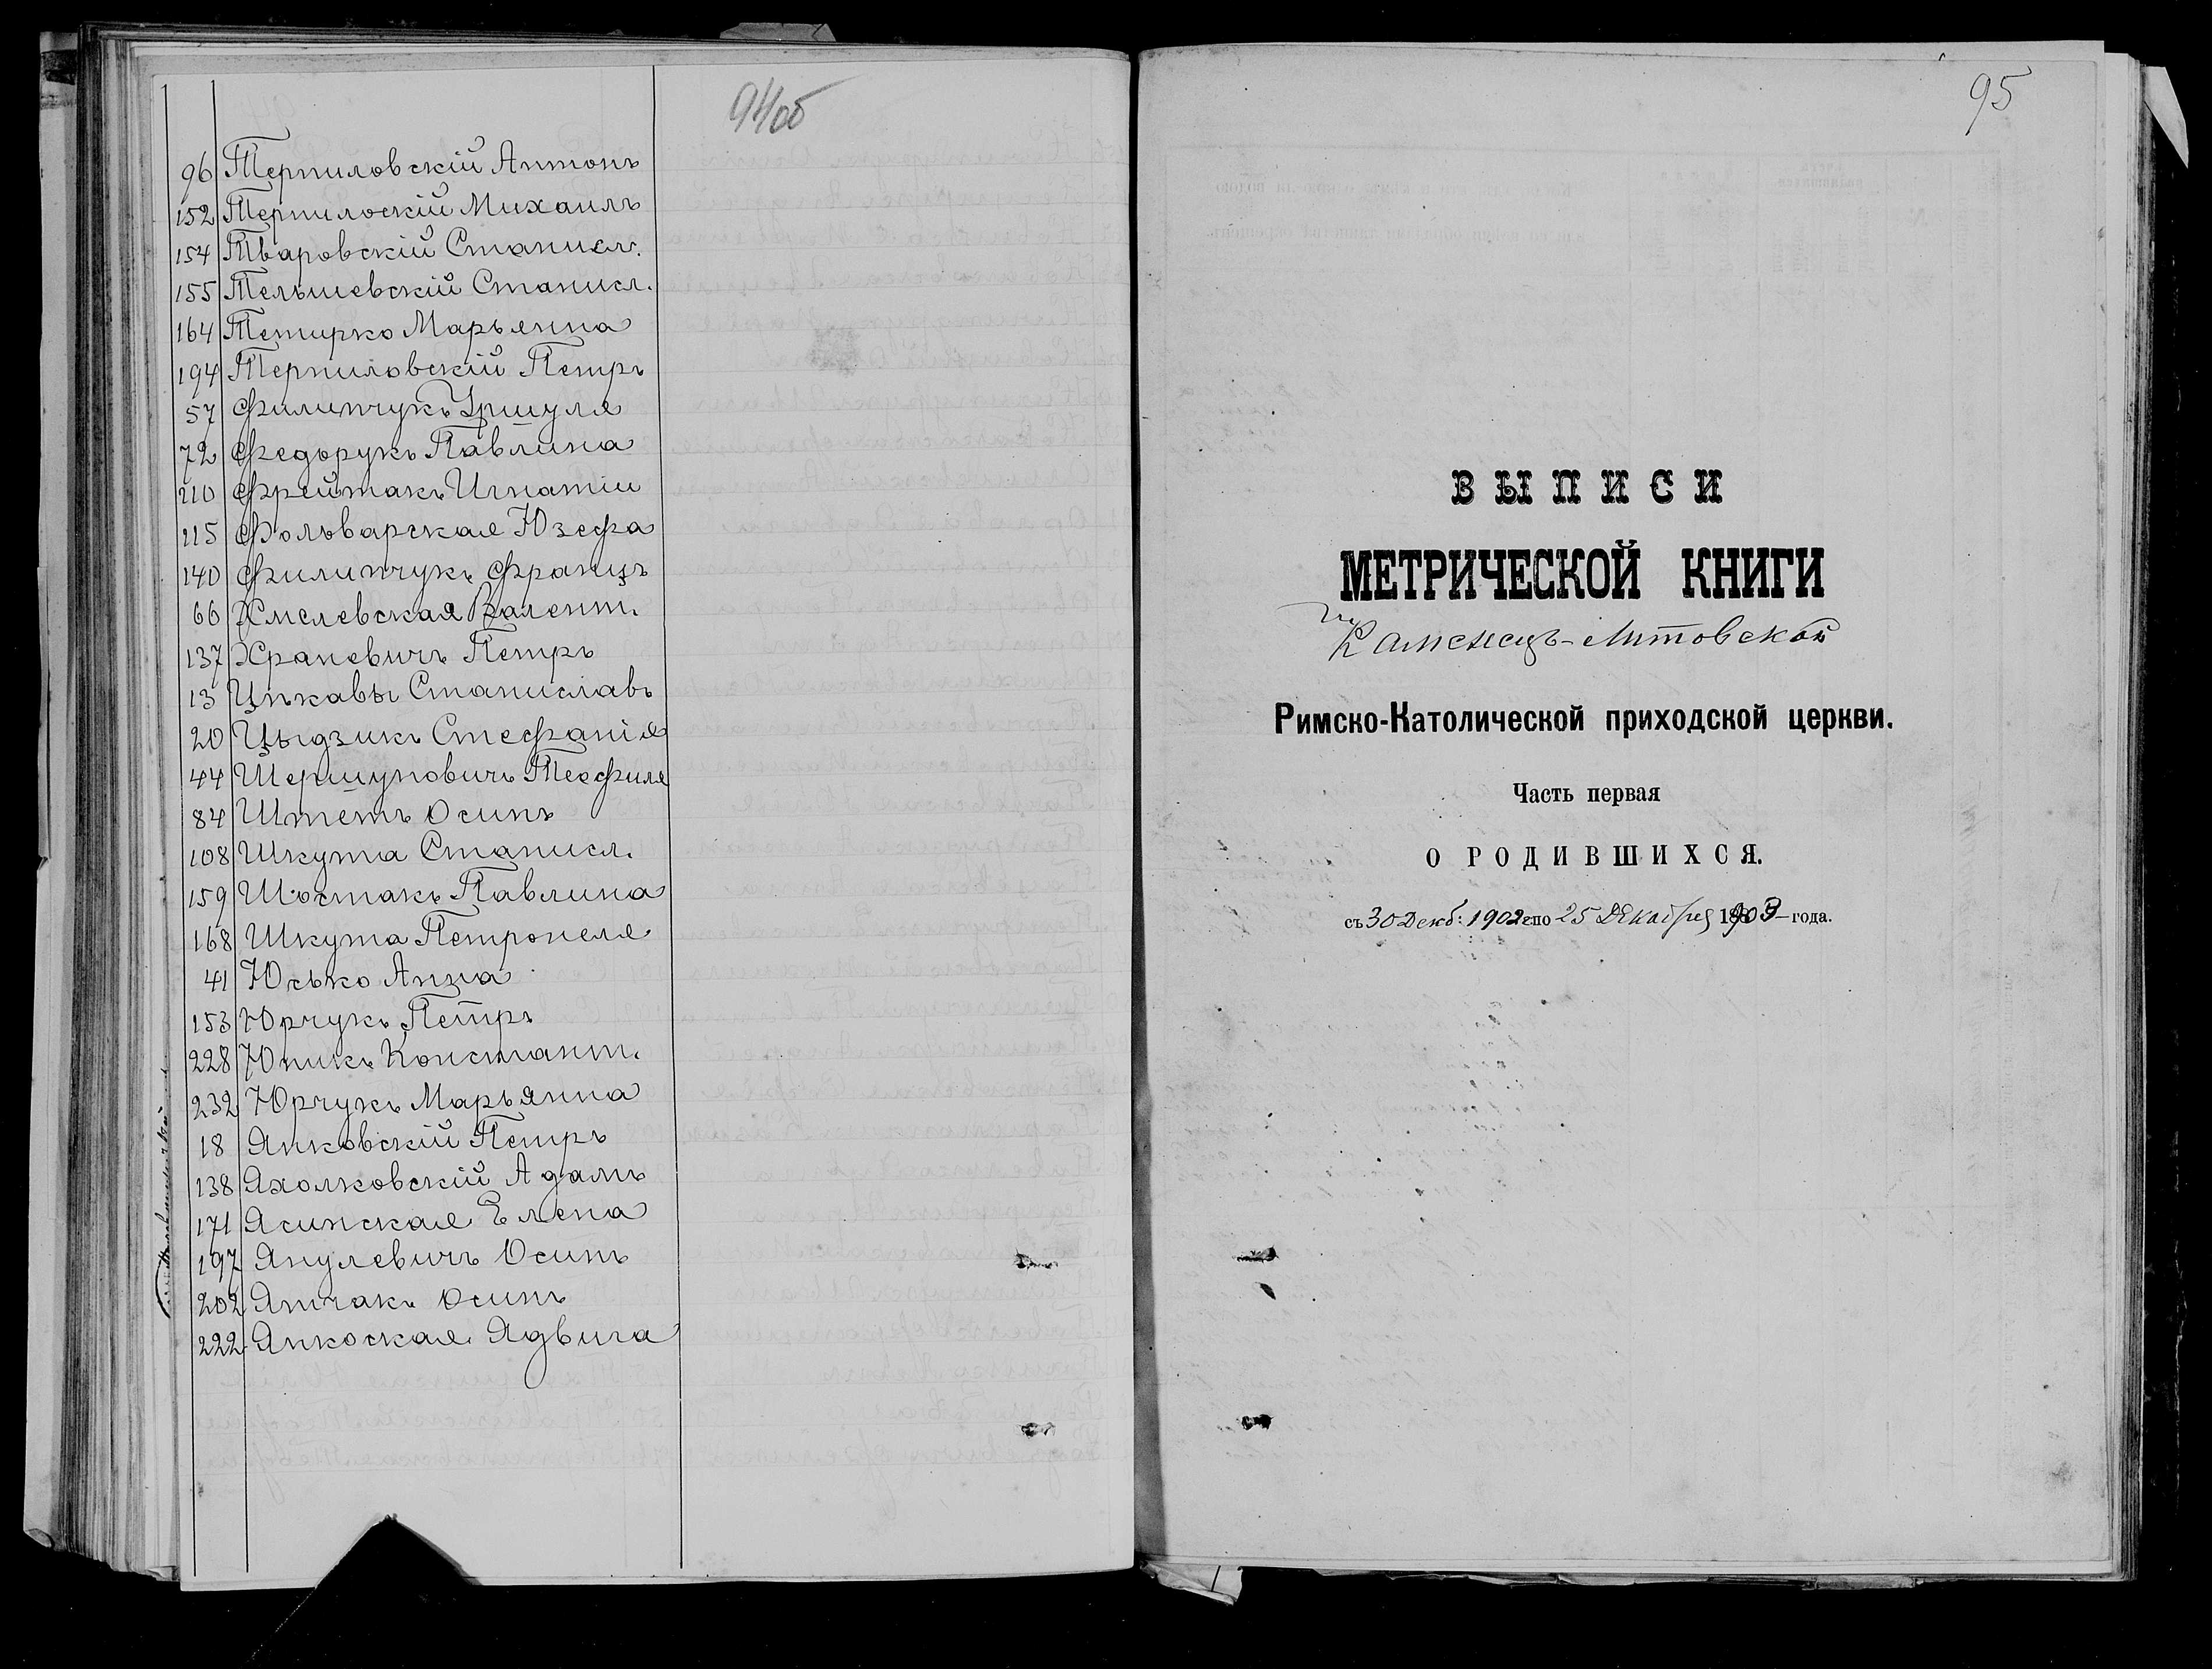 94об
96 Терпиловскій Антонъ
152 Терпилоскій Михаилъ
154 Тваровскій Станисл.
155 Тельшевскій Станисл.
164 Тетирко Марьянна
194 Терпиловскій Петръ
57 Филипчукъ Уршуля
72 Федорукъ Павлина
110 Фрейтакъ Игнатіи
115 Фольварская Юзефа
140 Филипчукъ Францъ
66 Хмелевская Валент.
137 Храневичъ Петръ
13 Цѣкавы Станиславъ
20 Цыдзикъ Стефанія
44 Шершуновичъ Теофиля
84 Штетъ Осипъ
108 Шкута Станисл.
159 Шостакъ Павлина
168 Шкута Петронеля
41 Юсько Анна
153 Юрчукъ Петръ
228 Юникъ Констант.
232 Юрчукъ Марьянна
18 Янковскій Петръ
138 Яхолковскій Адамъ
171 Ясинская Елена
197 Янулевичъ Осипъ
202 Янчакъ Осипъ
222 Янкоская Ядвига
95
ВЫПИСИ
МЕТРИЧЕСКОЙ КНИГИ
Каменецъ-Литовской
Римско-Католической приходской церкви.
Часть первая
О РОДИВШИХСЯ.
съ 30 Декб: 1902 г по 25 Декабря 1903 года.